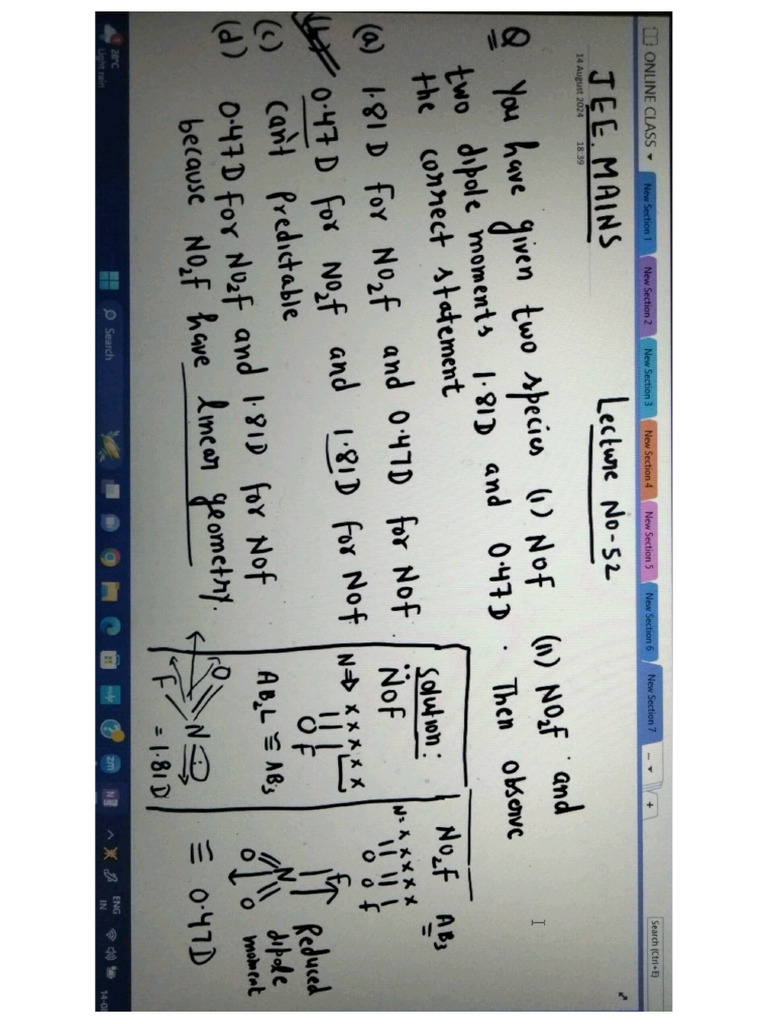 ONLINE CLASS
New Section 1
New Section 2
New Section 3
New Section 4
New Section 5
New Section 6
New Section 7
...
+
Search (Ctrl+E)
14 August 2024 18:39
JEE.MAINS Lecture No-52
Q You have given two species (i) NOF (ii) NO2F and
two dipole moments 1.81D and 0.47D. Then observe
the correct statement
(a) 1.81 D for NO2F and 0.47D for NOF
0.47 D for NO2F and 1.81D for NOF
(c) can't Predictable
(d) 0.47D for NO2F and 1.81D for NOF
because NO2F have linear geometry.
Solution:
N̈OF
N⇒ x x x x x
|| |
O F
AB2L ≅ AB3
O N
F
= 1.81D
NO2F AB3
N= x x x x x
|| || |
O O F
F
N
O O
Reduced
dipole
moment
≅ 0.47D
28°C
Light rain
Search
ENG
IN